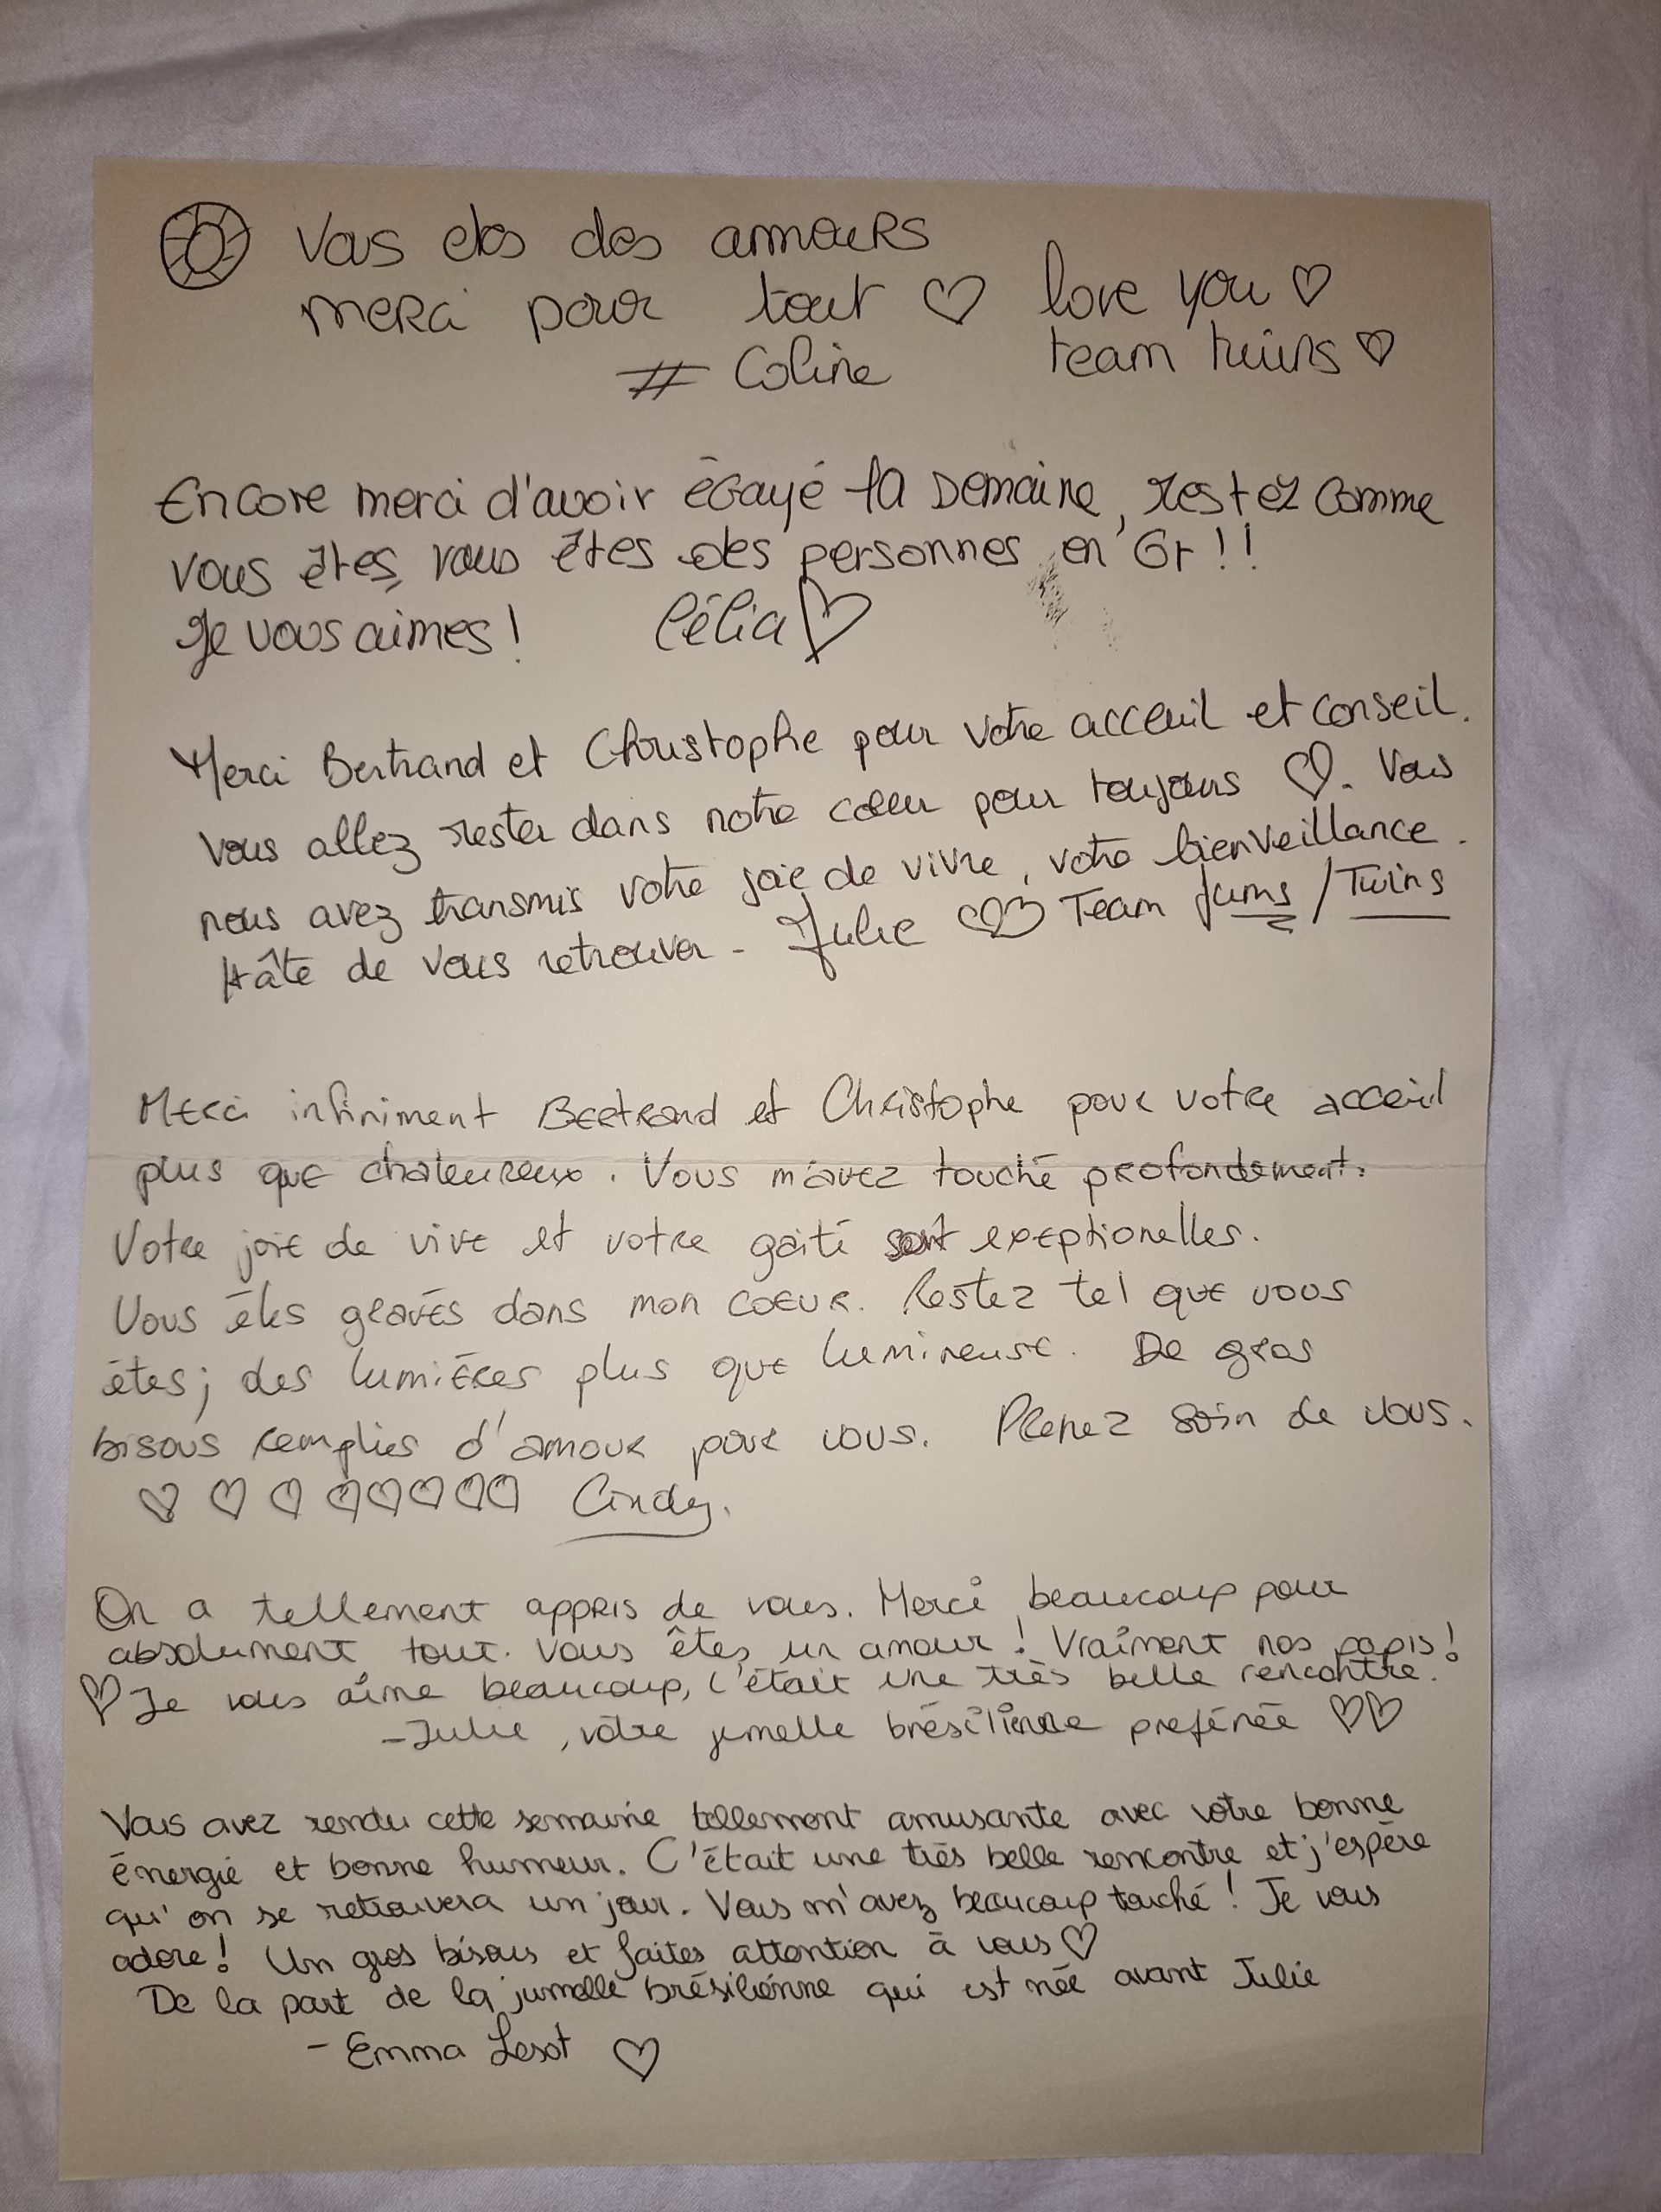 Vous etes des amours
merci pour tout ♡ love you ♡
# Coline team twins ♡
Encore merci d'avoir égayé la semaine, restez comme
vous êtes, vous êtes des personnes en Or !!
Je vous aimes ! Célia ♡
Merci Bertrand et Christophe pour votre acceuil et conseil.
Vous allez rester dans notre cœur pour toujours ♡. Vous
nous avez transmis votre joie de vivre, votre bienveillance.
Hâte de vous retrouver - Julie ♡♡ Team Jums / Twins
Merci infiniment Bertrand et Christophe pour votre acceuil
plus que chaleureux. Vous m'avez touché profondement.
Votre joie de vive et votre gaité sont exeptionelles.
Vous êtes gravés dans mon coeur. Restez tel que vous
êtes; des lumières plus que lumineuse. De gros
bisous remplies d'amour pour vous. Prenez soin de vous.
♡ ♡ ♡ ♡♡♡♡♡ Cindy.
On a tellement appris de vous. Merci beaucoup pour
absolument tout. Vous êtes un amour ! Vraiment nos papis !
♡ Je vous aime beaucoup, c'était une très belle rencontre.
- Julie, votre jumelle brésilienne preférée ♡♡
Vous avez rendu cette semaine tellement amusante avec votre bonne
énergie et bonne humeur. C'était une très belle rencontre et j'espère
qu'on se retrouvera un jour. Vous m'avez beaucoup touché ! Je vous
adore ! Un gros bisous et faites attention à vous ♡
De la part de la jumelle brésilienne qui est née avant Julie
- Emma Lesot ♡